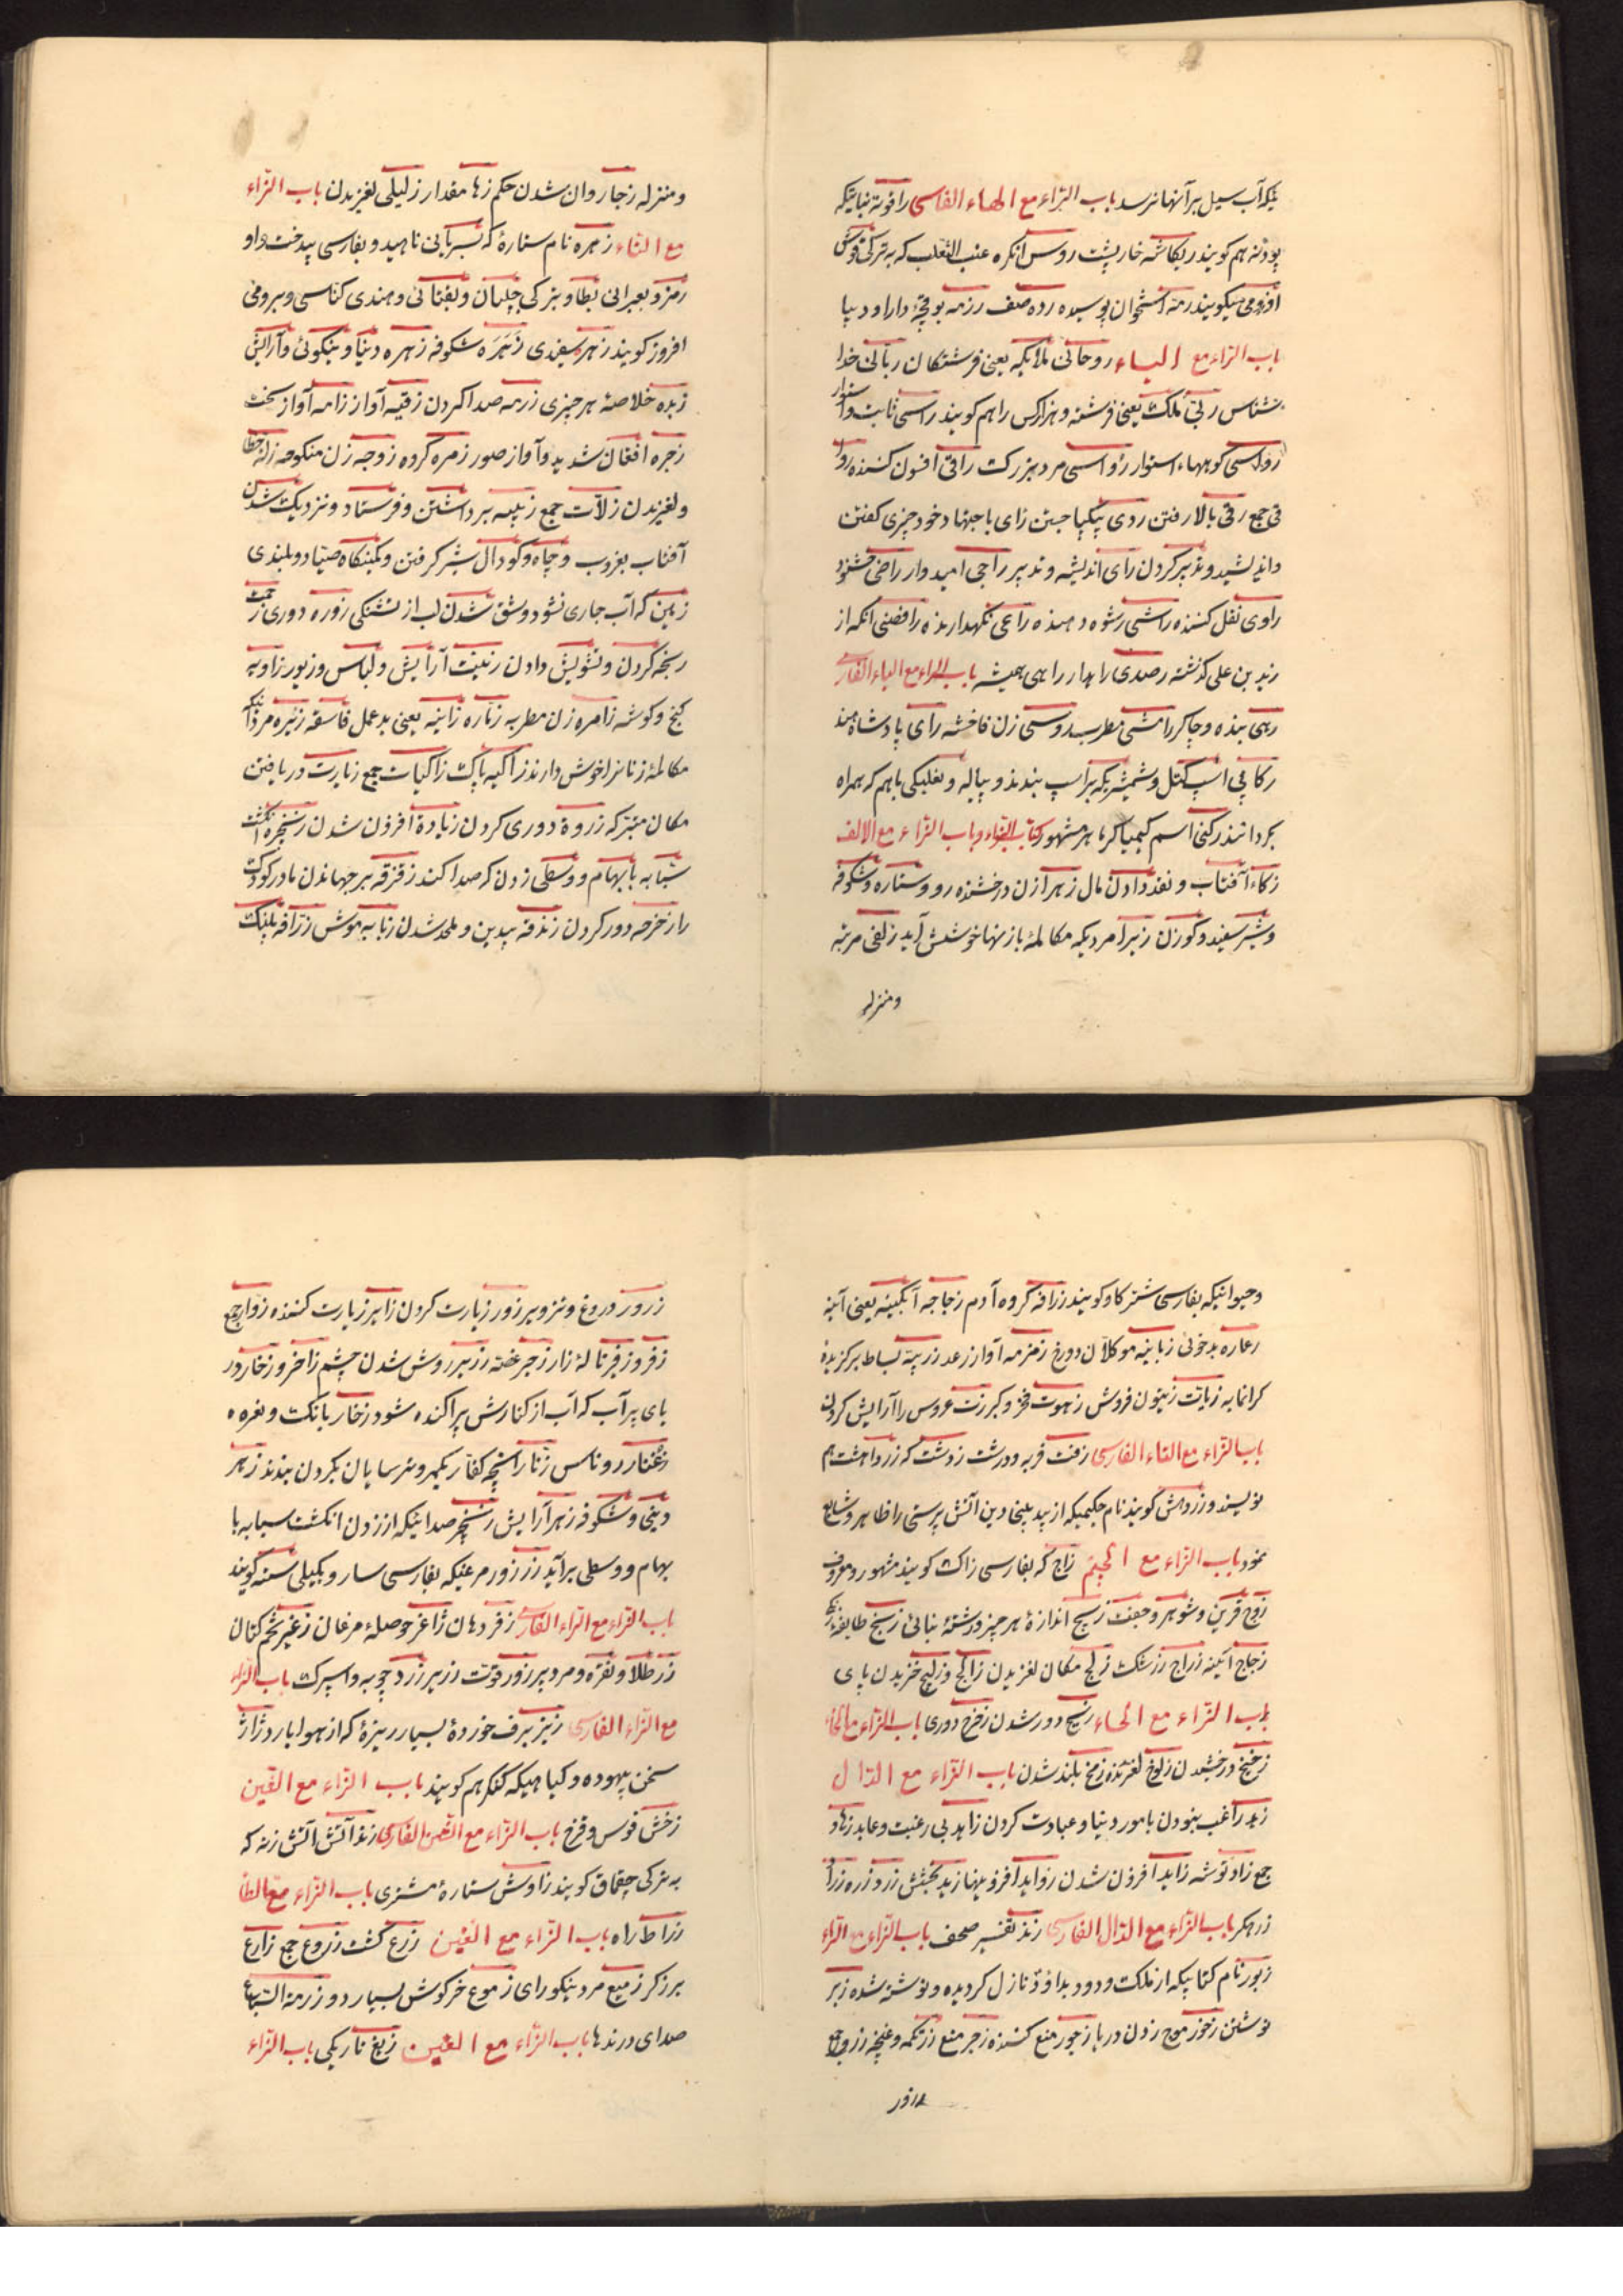 نیکه آب سیل برآنها نرسد باب الراء مع الهاء الفاسی رافونه نباتیکه
پودنه هم کویند ریکاشه خارپشت روس انکره عنب الثعلب که به ترکی قوش
اوزومی میکویند رمة استخوان پوسیده رده صف رزمه بوقچۀ دارا و دیبا
باب الراء مع الیاء روحانی ملائکه یعنی فرشتکان ربانی خدا
شناس ربی ملک یعنی فرشته و هزار کس را هم کویند راسی ثابت و استوار
رواسی کوههاء استوار رؤاسی مرد بزرک راقی افسون کننده
قی جمع رقی بالا رفتن ردی پیکپا جستن رای باجتهاد خود چیزی کفتن
واندیشید و تدبیر کردن رای اندیشه و تدبیر راجی امیدوار راضی خشنود
راوی نقل کننده راشی رشوه دهنده راعی نکهدارنده رافضی آنکه از
زید بن علی کذشته رصدی راهدار راهی همیشه باب الراء مع الیاء الفارسی
رهی بنده و چاکر رامشی مطرب روسی زن فاحشه رای پادشاه هند
رکابی اسپ کتل و شمشیریکه بر اسپ بندند و پیاله و نعلبکی باهم که همراه
بکردانند رکنی اسم کیمیاکر ماهر مشهور کتاب الزاء و باب الزاء مع الالف
زکاء آفتاب و نقد دادن مال زهرا زن درخشنده رو و ستاره و شکوفه
و شیر سفید و کوزن زیرا مردیکه مکالمۀ با زنها خوشش آید زلفی مرتبه
و منزله
و منزله زجا روان شدن حکم زها مقدار زلیلی لغزیدن باب الزاء
مع التاء زهره نام ستارۀ که بسریانی ناهید و بفارسی بیدخت و او
رمز و بعبرانی بطا و بترکی چلپان و یفتانی و هندی کناسی و برومی
افروز کویند زهره سفیدی زهره شکوفه زهره دنیا و نیکوئی و آرایش
زبده خلاصۀ هر چیزی زرمه صدا کردن زقیه آواز زامه آواز سخت
زجره افغان شدید و آواز صور زمره کروه زوجه زن منکوحه زله خطا
و لغزیدن زلات جمع زبیه برداشتن و فرستاد و نزدیک شدن
آفتاب بغروب و چاه و کودال شیر کرفتن و کمینکاه صیاد و بلندی
زمین که آب جاری نشود و شق شدن لب از تشنکی زوره دوری زحمت
رنجه کردن و تشویش دادن زینت آرایش و لباس و زیور زاویه
کنج و کوشه زامره زن مطربه زناره زانیه یعنی بدعمل فاسقه زئره مردانیکه
مکالمۀ زنانرا خوش دارند زاکیه پاک زاکیات جمع زیارت دریافتن
مکان متبرکه زروة دوری کردن زیادة افزون شدن زنجره انکشت
شبابه بابهام و وسطی زدن که صدا کند زقزقه برجهاندن مادر کودک
را زحزحه دور کردن زندقه بیدین و ملحد شدن زبابه موش زرافه پلنک
و حیوانیکه بفارسی شترکاو کویند زرافه کروه آدم زجاجه آبکینه یعنی آینه
زعاره بدخوئی زبانیه موکلان دوزخ زمزمه آواز رعد زربیة بساط برکزیده
کرانمایه زیات زیتون فروش زهوت فخر و کبر زت عروس را آرایش کردن
باب الزاء مع التاء الفارسی زفت فربه و درشت زردشت که زرداهشت هم
نویسند و زردهش کویند نام حکیمیکه از بیدینی دین آتش پرستی را ظاهر و شایع
نمود باب الزاء مع الجیم زاج که بفارسی زاک کویند مشهور و معروف
زوج قرین و شوهر و جفت زیج اندازۀ هر چیز و رشتۀ بنائی زنج طایفۀ زنکی
زجاج آئینه زراج رزستک زلج مکان لغزیدن زالج و زلیج خزیدن پای
باب الزاء مع الحاء زیح دور شدن زحزح دوری باب الزاء مع الخاء
زخیخ درخشیدن زلوخ لغزنده زمخ بلند شدن باب الزاء مع الدال
زهد راغب نبودن بامور دنیا و عبادت کردن زاهد بی رغبت و عابد زهاد
جمع زاد توشه زاید افزون شدن زواید افزونیها زید بخشش زرد زره زراد
زرهکر باب الزاء مع الدال الفارسی زند تفسیر صحف باب الزاء مع الراء
زبور نام کتابیکه از ملک ودود بداوود نازل کردیده و نوشته شده زبر
نوشتن زخور موج زدن دریا زجور منع کننده زجر منع زر تکمه و غنچه زرور جمع
زرور دروغ و تزویر زور زیارت کردن زایر زیارت کننده زوار جمع
زفر و زفیر نالۀ زار زجر غصه زریر روش شدن چشم زاخر و زخار در
یای پر آب که آب از کنارش پراکنده شود زخار بانکت و نعره
زغنار روناس زنار آنچه کفار بکمر و ترسایان بکردن بندند زهر
دینی و شکوفه زهر آرایش زنجر صدائیکه از زدن انکشت سبابه با
بهام و وسطی برآید زرزور مرغیکه بفارسی سار و بکیلی سته کویند
باب الزاء مع الراء الفارسی زفر دهان ژاغر حوصلۀ مرغان زغیر تخم کتان
زر طلا و نقره و مرد پیر زور قوت زریر زردچوبه و اسپرک باب الزاء
مع الزاء الفارسی زیز برف خوردۀ بسیار ریزۀ که از هوا بارد ژاژ
سخن بیهوده و کیاهیکه کنکر هم کویند باب الزاء مع الشین
زخش قوس و قزح باب الزاء مع الشین الفارسی زند آتش آتش زنه که
به ترکی چقماق کویند زاوش ستارۀ مشتری باب الزاء مع الطاء
زراط راه باب الزاء مع العین زرع کشت زروع جمع زارع
برزکر زمیع مرد نیکو رای زموع خرکوش بسیار دو زرمة السباع
صدای درندها باب الزاء مع الغین زیغ تاریکی باب الزاء